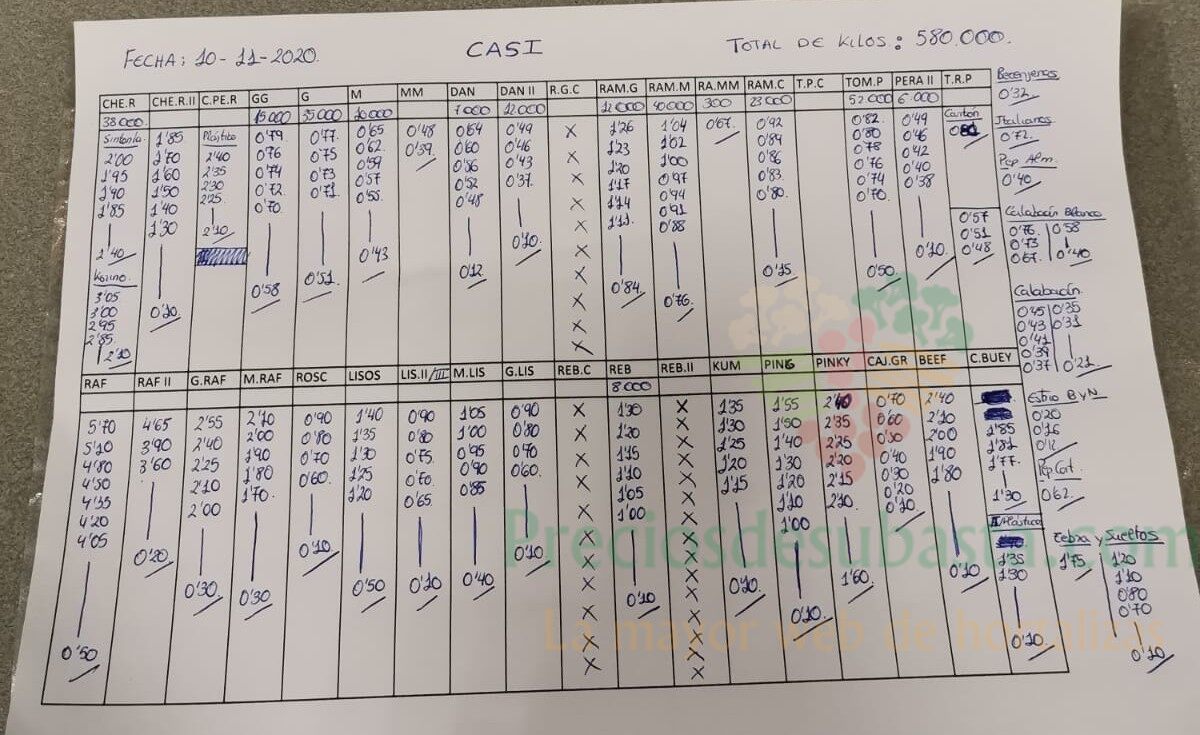 FECHA: 10-11-2020.
CASI
TOTAL DE KILOS: 580.000.
CHE.R CHE.R.II C.PE.R GG G M MM DAN DAN II R.G.C RAM.G RAM.M RA.MM RAM.C T.P.C TOM.P PERA II T.R.P
38000 15000 35000 20000 7000 12000 12000 40000 300 23000 52000 6000
Sintonía
2'00
1'95
1'90
1'85
1'40
Korino
3'05
3'00
2'95
2'85
2'10
1'85
1'70
1'60
1'50
1'40
1'30
0'20
Plástico
2'40
2'35
2'30
2'25
2'10
0'79
0'76
0'74
0'72
0'70
0'58
0'77
0'75
0'73
0'71
0'51
0'65
0'62
0'59
0'57
0'55
0'43
0'48
0'39
0'64
0'60
0'56
0'52
0'48
0'12
0'49
0'46
0'43
0'37
0'10
X
X
X
X
X
X
X
X
X
1'26
1'23
1'20
1'17
1'14
1'11
0'84
1'04
1'02
1'00
0'97
0'94
0'91
0'88
0'76
0'67
0'92
0'89
0'86
0'83
0'80
0'15
0'82
0'80
0'78
0'76
0'74
0'70
0'50
0'49
0'46
0'42
0'40
0'38
0'10
Cartón
0'57
0'51
0'48
Berenjenas
0'32
Italianos
0'72
Pep Alm.
0'40
Calabacín Blanco
0'76 0'58
0'73
0'67 0'40
Calabacín
0'45 0'35
0'43 0'31
0'41
0'39
0'37 0'21
RAF RAF II G.RAF M.RAF ROSC LISOS LIS.II/III M.LIS G.LIS REB.C REB REB.II KUM PING PINKY CAJ.GR BEEF C.BUEY
8000
5'70
5'10
4'80
4'50
4'35
4'20
4'05
0'50
4'65
3'90
3'60
0'20
2'55
2'40
2'25
2'10
2'00
0'30
2'10
2'00
1'90
1'80
1'70
0'30
0'90
0'80
0'70
0'60
0'10
1'40
1'35
1'30
1'25
1'20
0'50
0'90
0'80
0'75
0'70
0'65
0'10
1'05
1'00
0'95
0'90
0'85
0'40
0'90
0'80
0'70
0'60
0'10
X
X
X
X
X
X
X
X
X
X
X
1'30
1'20
1'15
1'10
1'05
1'00
0'10
X
X
X
X
X
X
X
X
X
X
X
1'35
1'30
1'25
1'20
1'15
0'10
1'55
1'50
1'40
1'30
1'20
1'10
1'00
0'10
2'40
2'35
2'25
2'20
2'15
2'10
1'60
0'70
0'60
0'50
0'40
0'30
0'20
0'10
2'40
2'10
2'00
1'90
1'80
0'10
1'85
1'81
1'77
1'30
II Plástico
1'35
1'30
0'10
Estrio ByN
0'20
0'16
Pep Cort.
0'62
Cebra y sueltos
1'75 1'20
1'10
0'80
0'70
0'10
Preciosdesubasta.com
La mayor web de hortalizas